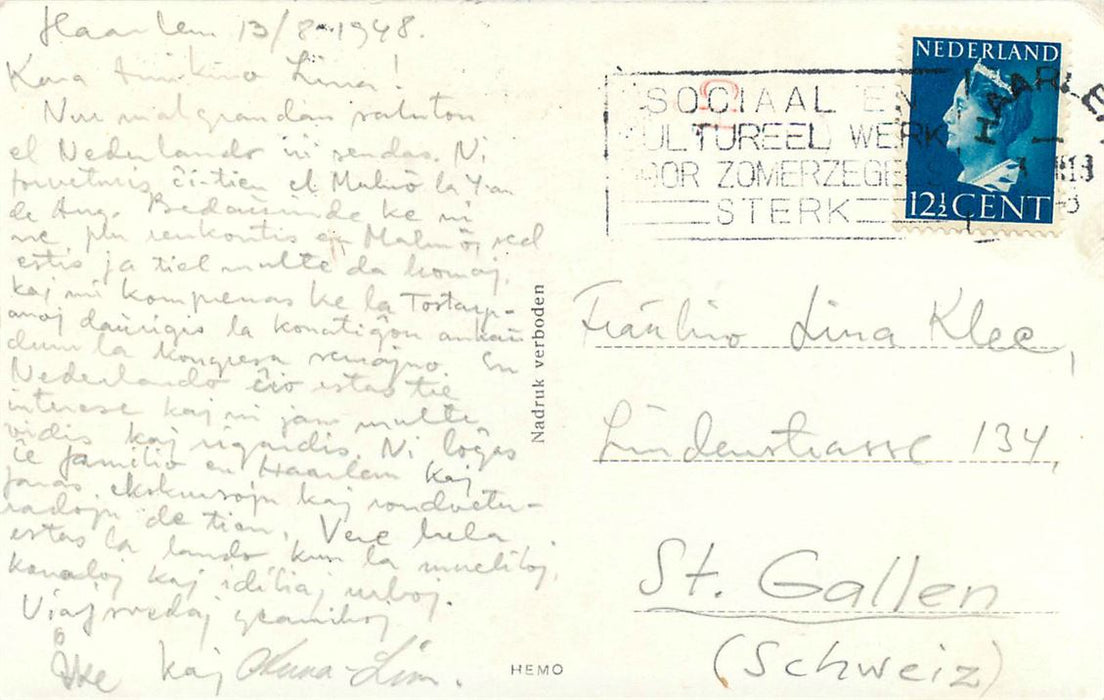 Haarlem 13/8-1948.
Kara amikino Lina!
Nur malgrandan saluton
el Nederlando ni sendas. Ni
forveturis ĉi-tien el Malmö la 4-an
de Aug. Bedaŭrinde ke ni
ne plu renkontis en Malmö, sed
estis ja tiel multe da homoj,
kaj mi komprenas ke la
anoj daŭrigis la konatiĝon ankaŭ
dum la kongresa semajno. En
Nederlando ĉio estas tre
interese kaj ni jam multe
vidis kaj rigardis. Ni loĝas
ĉe familio en Haarlem kaj
faras ekskursojn kaj rondvetu-
radojn de tien. Vere bela
estas la lando kun la muelitoj,
kanaloj kaj idiliaj urboj.
Viaj svedaj geamikoj
Åke kaj Anna-Lisa.
SOCIAAL EN
CULTUREEL WERK
VOOR ZOMERZEGELS
STERK
HAARLEM
NEDERLAND
12½ CENT
Nadruk verboden
Fräulino Lina Klee,
Lindenstrasse 134,
St. Gallen
(Schweiz)
HEMO